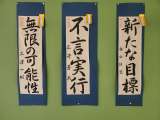 新たな目標
不言実行
無限の可能性